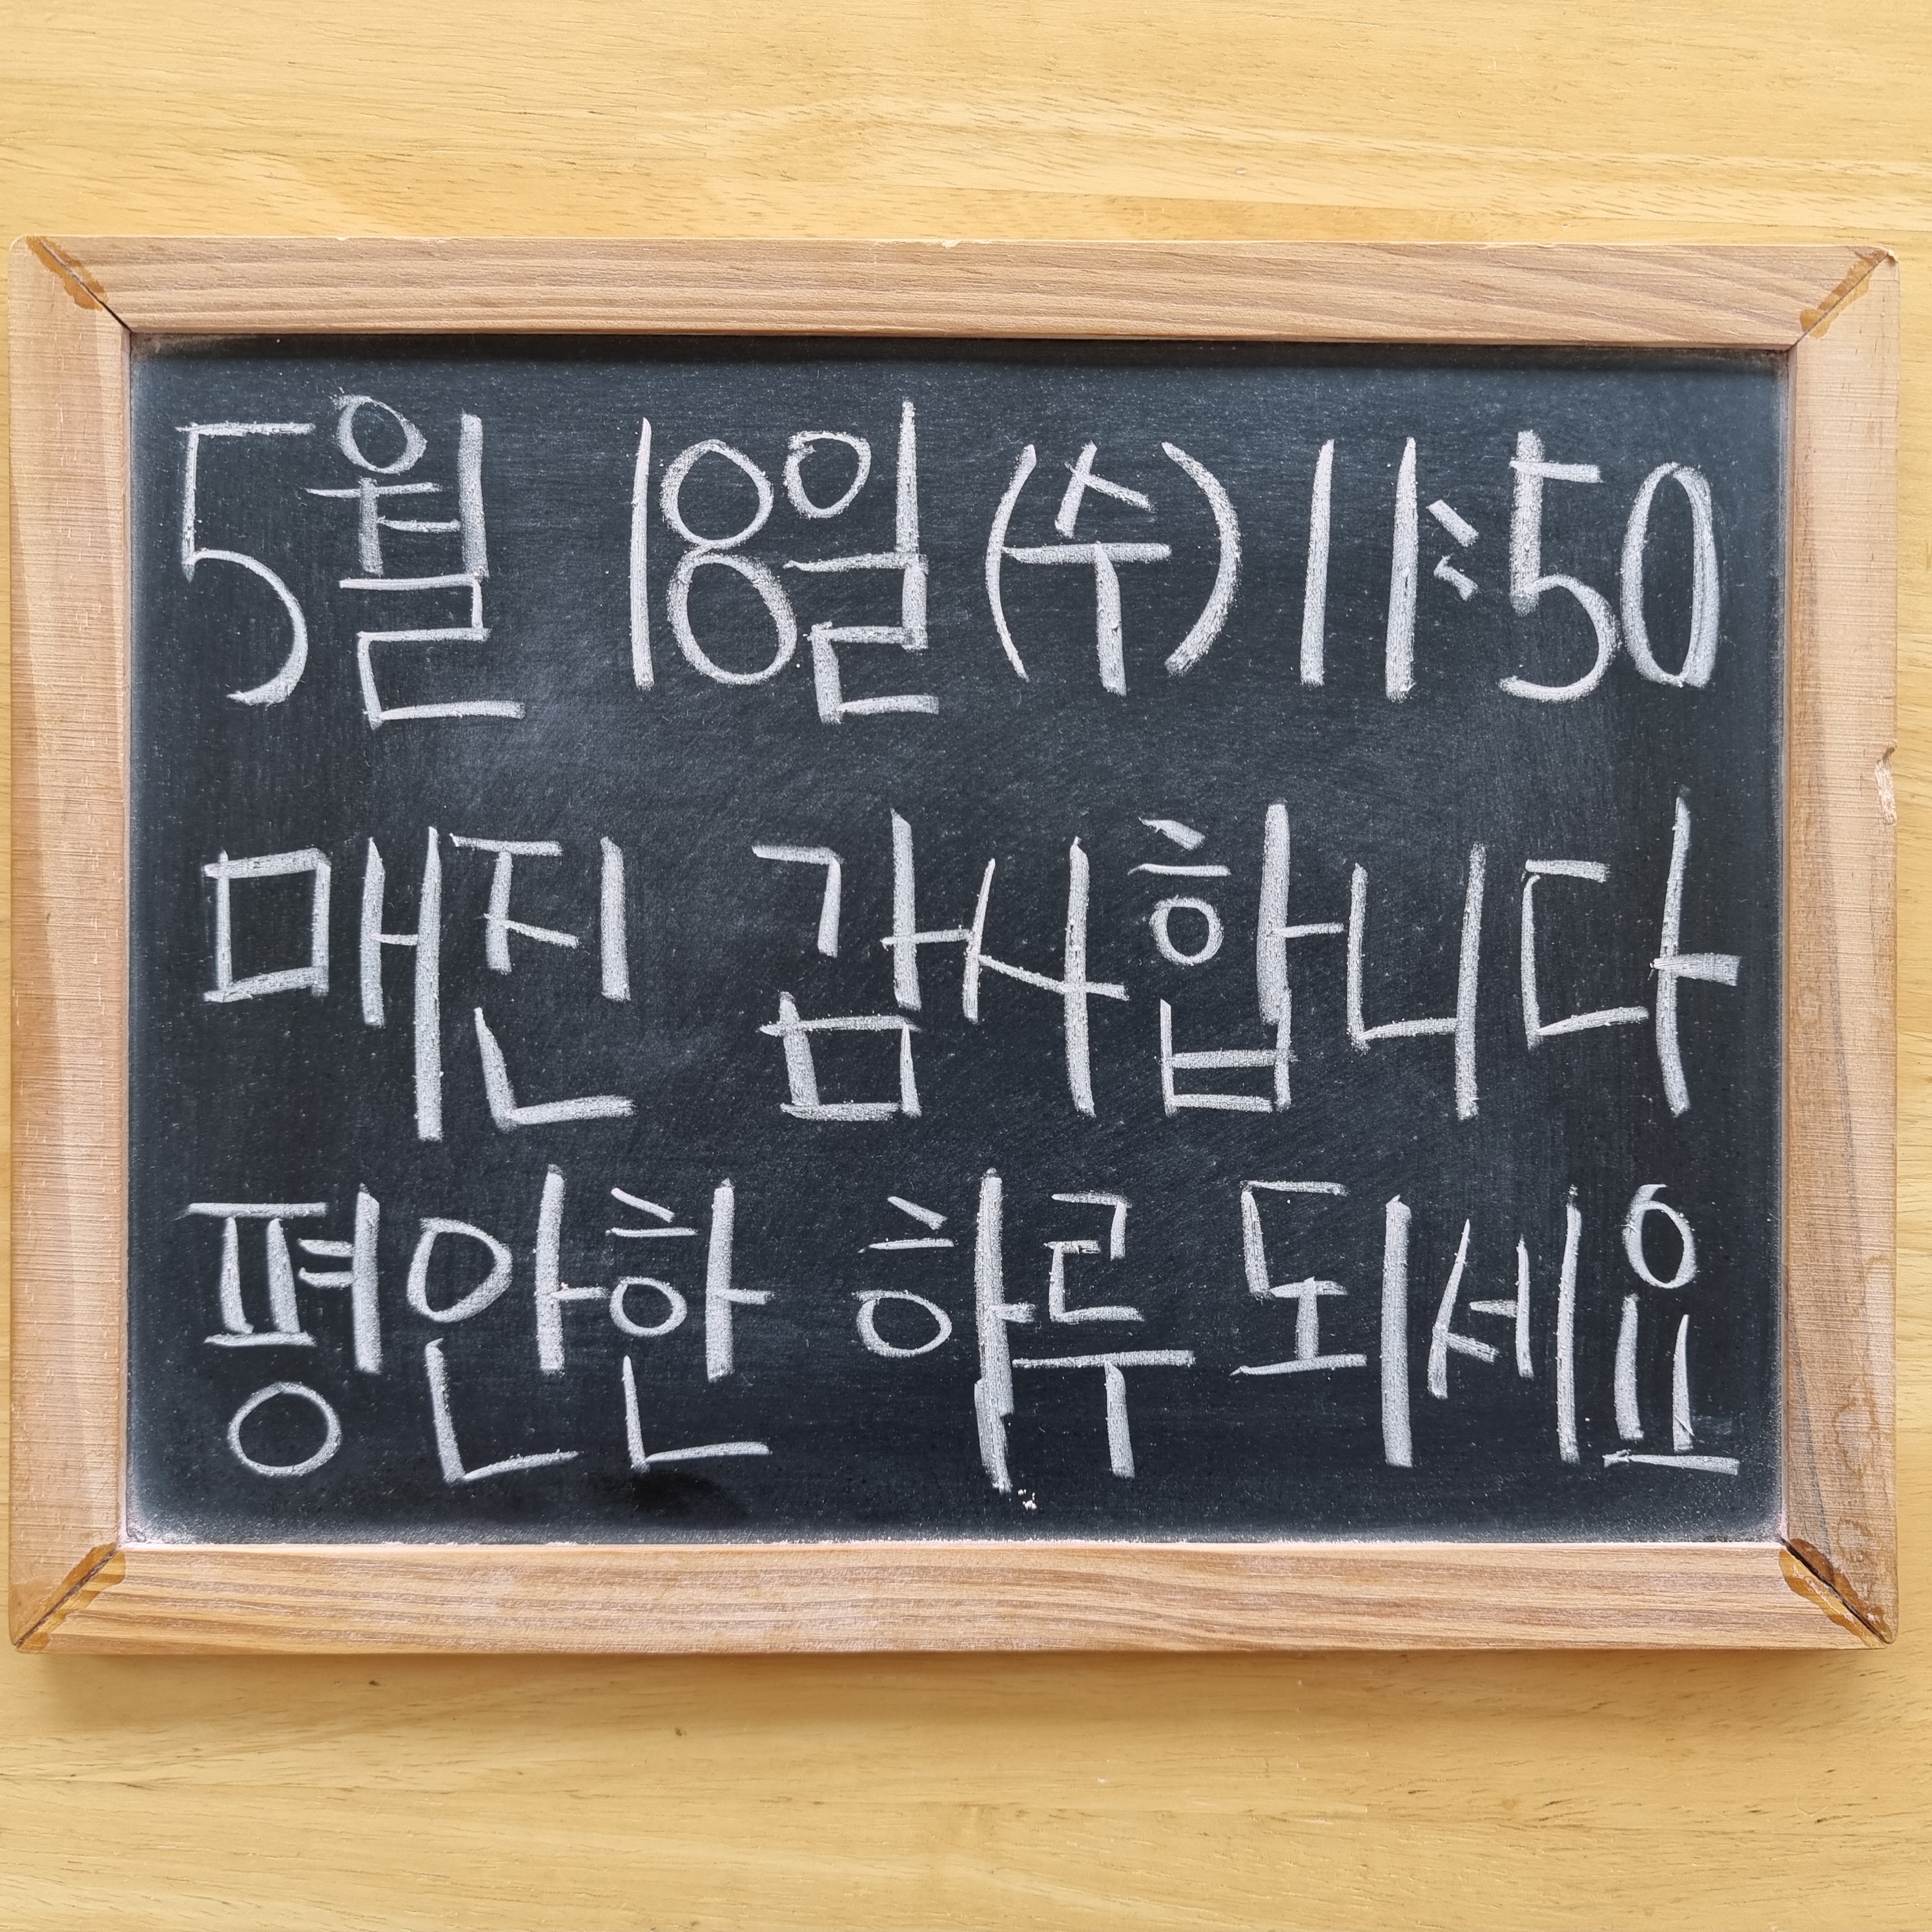 5월 18일(수) 11:50
매진 감사합니다
평안한 하루 되세요